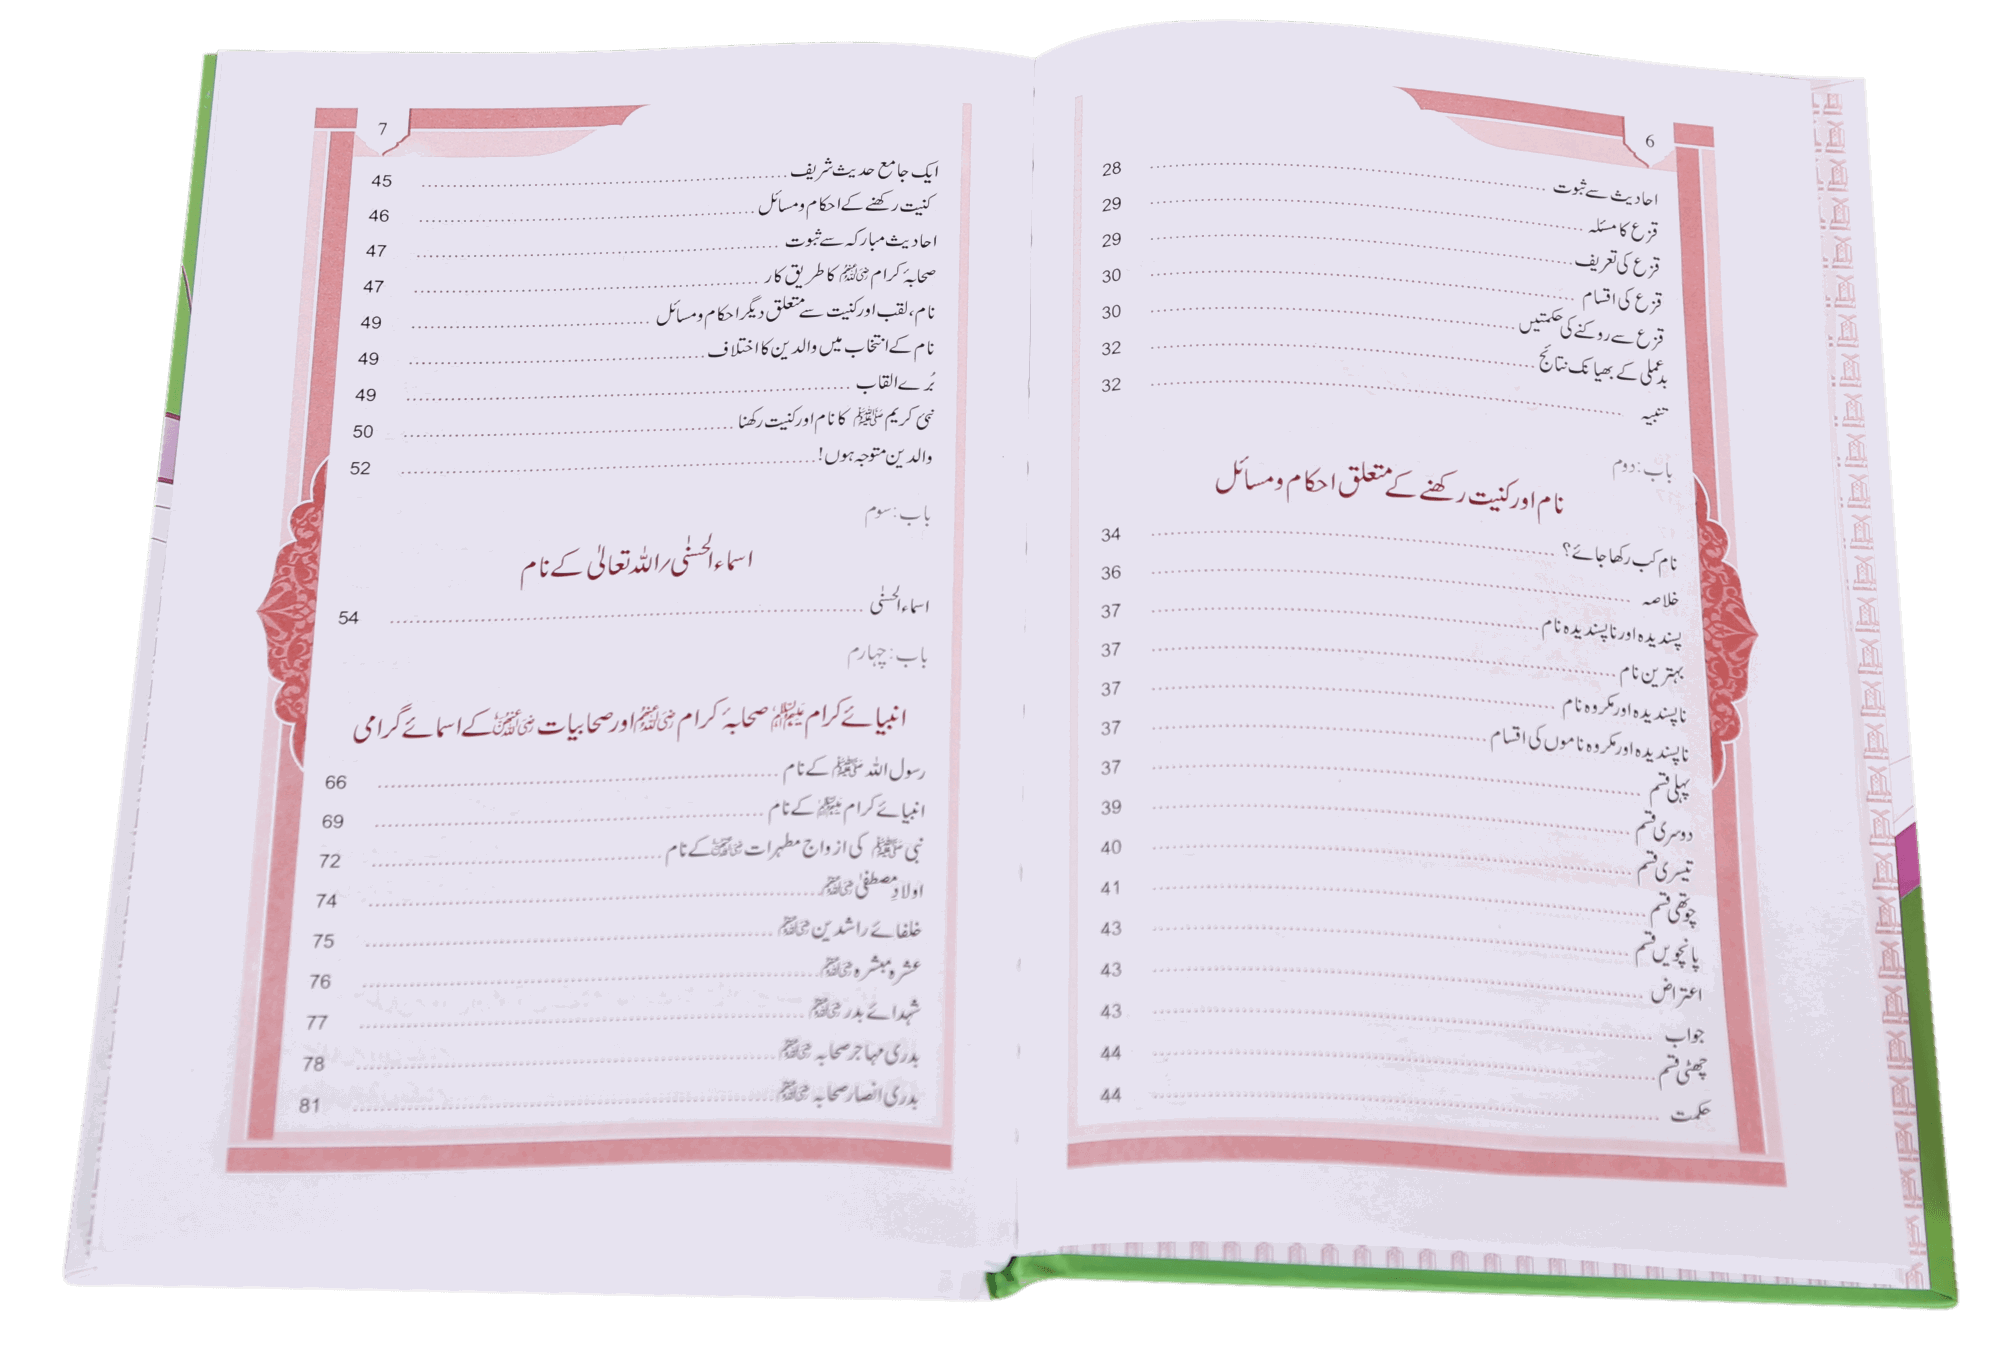 6
احادیث سے ثبوت ........ 28
قزع کا مسئلہ ........ 29
قزع کی تعریف ........ 29
قزع کی اقسام ........ 30
قزع سے روکنے کی حکمتیں ........ 30
بدعملی کے بھیانک نتائج ........ 32
تنبیہ ........ 32
باب: دوم
نام اور کنیت رکھنے کے متعلق احکام و مسائل
نام کب رکھا جائے؟ ........ 34
خلاصہ ........ 36
پسندیدہ اور ناپسندیدہ نام ........ 37
بہترین نام ........ 37
ناپسندیدہ اور مکروہ نام ........ 37
ناپسندیدہ اور مکروہ ناموں کی اقسام ........ 37
پہلی قسم ........ 37
دوسری قسم ........ 39
تیسری قسم ........ 40
چوتھی قسم ........ 41
پانچویں قسم ........ 43
اعتراض ........ 43
جواب ........ 43
چھٹی قسم ........ 44
حکمت ........ 44
7
ایک جامع حدیث شریف ........ 45
کنیت رکھنے کے احکام و مسائل ........ 46
احادیث مبارکہ سے ثبوت ........ 47
صحابۂ کرام رضی اللہ عنہم کا طریق کار ........ 47
نام، لقب اور کنیت سے متعلق دیگر احکام و مسائل ........ 49
نام کے انتخاب میں والدین کا اختلاف ........ 49
بُرے القاب ........ 49
نبی کریم ﷺ کا نام اور کنیت رکھنا ........ 50
والدین متوجہ ہوں! ........ 52
باب: سوم
اسماء الحسنٰی/اللہ تعالیٰ کے نام
اسماء الحسنٰی ........ 54
باب: چہارم
انبیائے کرام علیہم السلام صحابۂ کرام رضی اللہ عنہم اور صحابیات رضی اللہ عنہن کے اسمائے گرامی
رسول اللہ ﷺ کے نام ........ 66
انبیائے کرام علیہم السلام کے نام ........ 69
نبی ﷺ کی ازواج مطہرات رضی اللہ عنہن کے نام ........ 72
اولادِ مصطفیٰ رضی اللہ عنہم ........ 74
خلفائے راشدین رضی اللہ عنہم ........ 75
عشرہ مبشرہ رضی اللہ عنہم ........ 76
شہدائے بدر رضی اللہ عنہم ........ 77
بدری مہاجر صحابہ رضی اللہ عنہم ........ 78
بدری انصار صحابہ رضی اللہ عنہم ........ 81